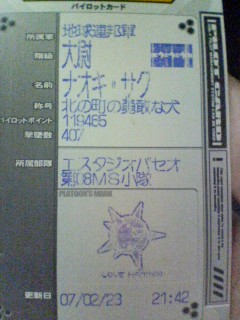 パイロットカード
所属軍 地球連邦軍
階級 大尉
名前 ナオキ・サク
称号 北の町の勇敢な犬
パイロットポイント 119465
撃墜数 407
所属部隊 エスタジオパセオ
第08MS小隊
PLATOON'S MARK
更新日 07/02/23 21:42